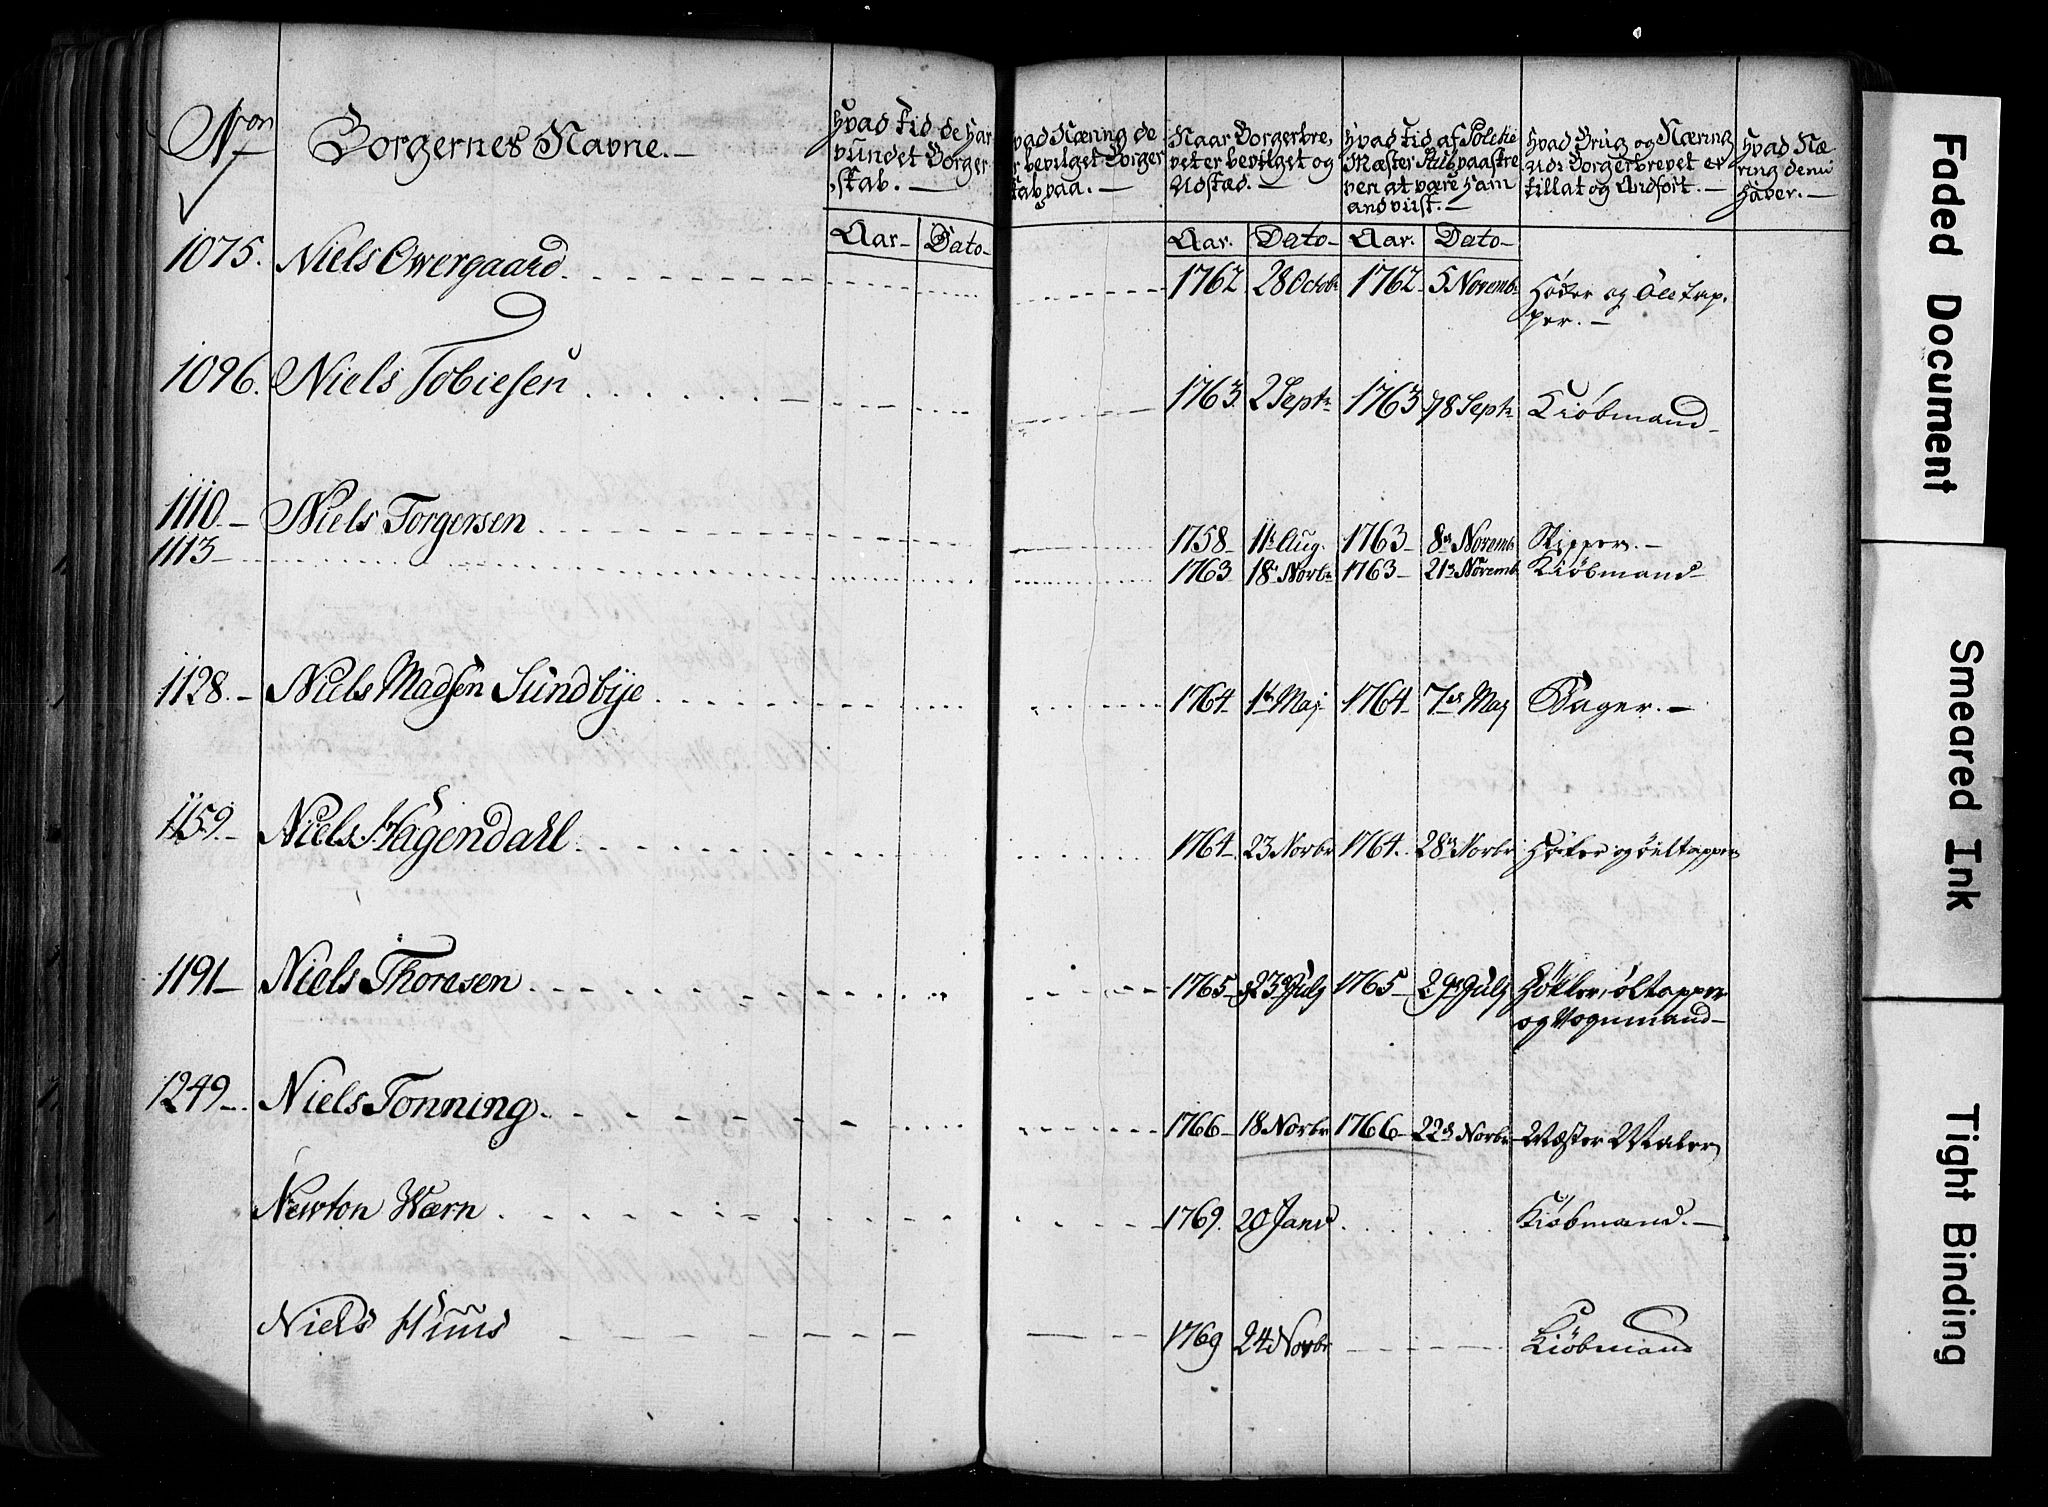 Nor
Borgernes Navne.—
Hvad Tid de har
vundet Borger
skab.—
Aar— Dato—
vad Næring de
r bevilget Borger
skab paa.—
Naar Borgerbre,
vet er bevilget og
Udstæd.—
Aar. Dato—
Hvad Tid af Politie
Mæster paaskre
ven at være ham
andviist.—
Aar. Dato—
Hvad Brug og Næring
udi Borgerbrevet er
tillat og Andført.—
Hvad Næ
ring de nu
haver.—
1075. Niels Owergaard. 1762 28 Octobr 1762 5 Novembr Höker og Öle tap,
per.—
1096. Niels Tobiesen 1763 2 Septr 1763 Septr Kiöbmand
1110.— Niels Torgersen 1758— 11t Aug. 1763— 8de Novemb. Skipper.—
1113— 1763 18de Novbr 1763— 21de Novemb. Kiöbmand—
1128.— Niels Madsen Sundbÿe 1764— 1t Maj 1764— 7de Maj Bager.—
1159.— Niels Hagendahl 1764— 23 Novbr 1764. 28de Novbr Höker og öeltapper
1191— Niels Thoresen 1765— 23de Julj 1765— 29de Julj HöKler, öltapper
og Vognmand—
1249— Niels Tonning 1766— 18 Novbr 1766— 22de Novbr Mæster Maler
Newton Wærn 1769. 20 Janv Kiöbmand.—
Niels Huus 1769 24 Novbr Kiöbmand
Faded Document
Smeared Ink
Tight Binding